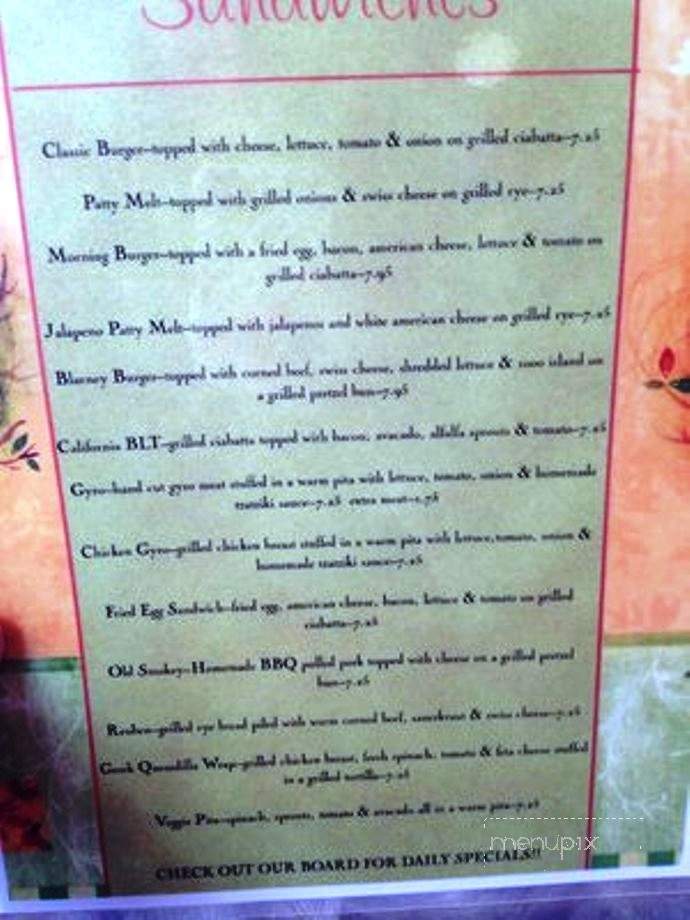 Sandwiches
Classic Burger–topped with cheese, lettuce, tomato & onion on grilled ciabatta–7.25
Patty Melt–topped with grilled onions & swiss cheese on grilled rye–7.25
Morning Burger–topped with a fried egg, bacon, american cheese, lettuce & tomato on
grilled ciabatta–7.95
Jalapeno Patty Melt–topped with jalapenos and white american cheese on grilled rye–7.25
Blarney Burger–topped with corned beef, swiss cheese, shredded lettuce & 1000 island on
a grilled pretzel bun–7.95
California BLT–grilled ciabatta topped with bacon, avocado, alfalfa sprouts & tomato–7.25
Gyro–hand cut gyro meat stuffed in a warm pita with lettuce, tomato, onion & homemade
tzatziki sauce–7.25 extra meat–1.75
Chicken Gyro–grilled chicken breast stuffed in a warm pita with lettuce,tomato, onion &
homemade tzatziki sauce–7.25
Fried Egg Sandwich–fried egg, american cheese, bacon, lettuce & tomato on grilled
ciabatta–7.25
Old Smokey–Homemade BBQ pulled pork topped with cheese on a grilled pretzel
bun–7.25
Reuben–grilled rye bread piled with warm corned beef, sauerkraut & swiss cheese–7.25
Greek Quesadilla Wrap–grilled chicken breast, fresh spinach, tomato & feta cheese stuffed
in a grilled tortilla–7.25
Veggie Pita–spinach, sprouts, tomato & avocado all in a warm pita–7.25
CHECK OUT OUR BOARD FOR DAILY SPECIALS!!
menupix